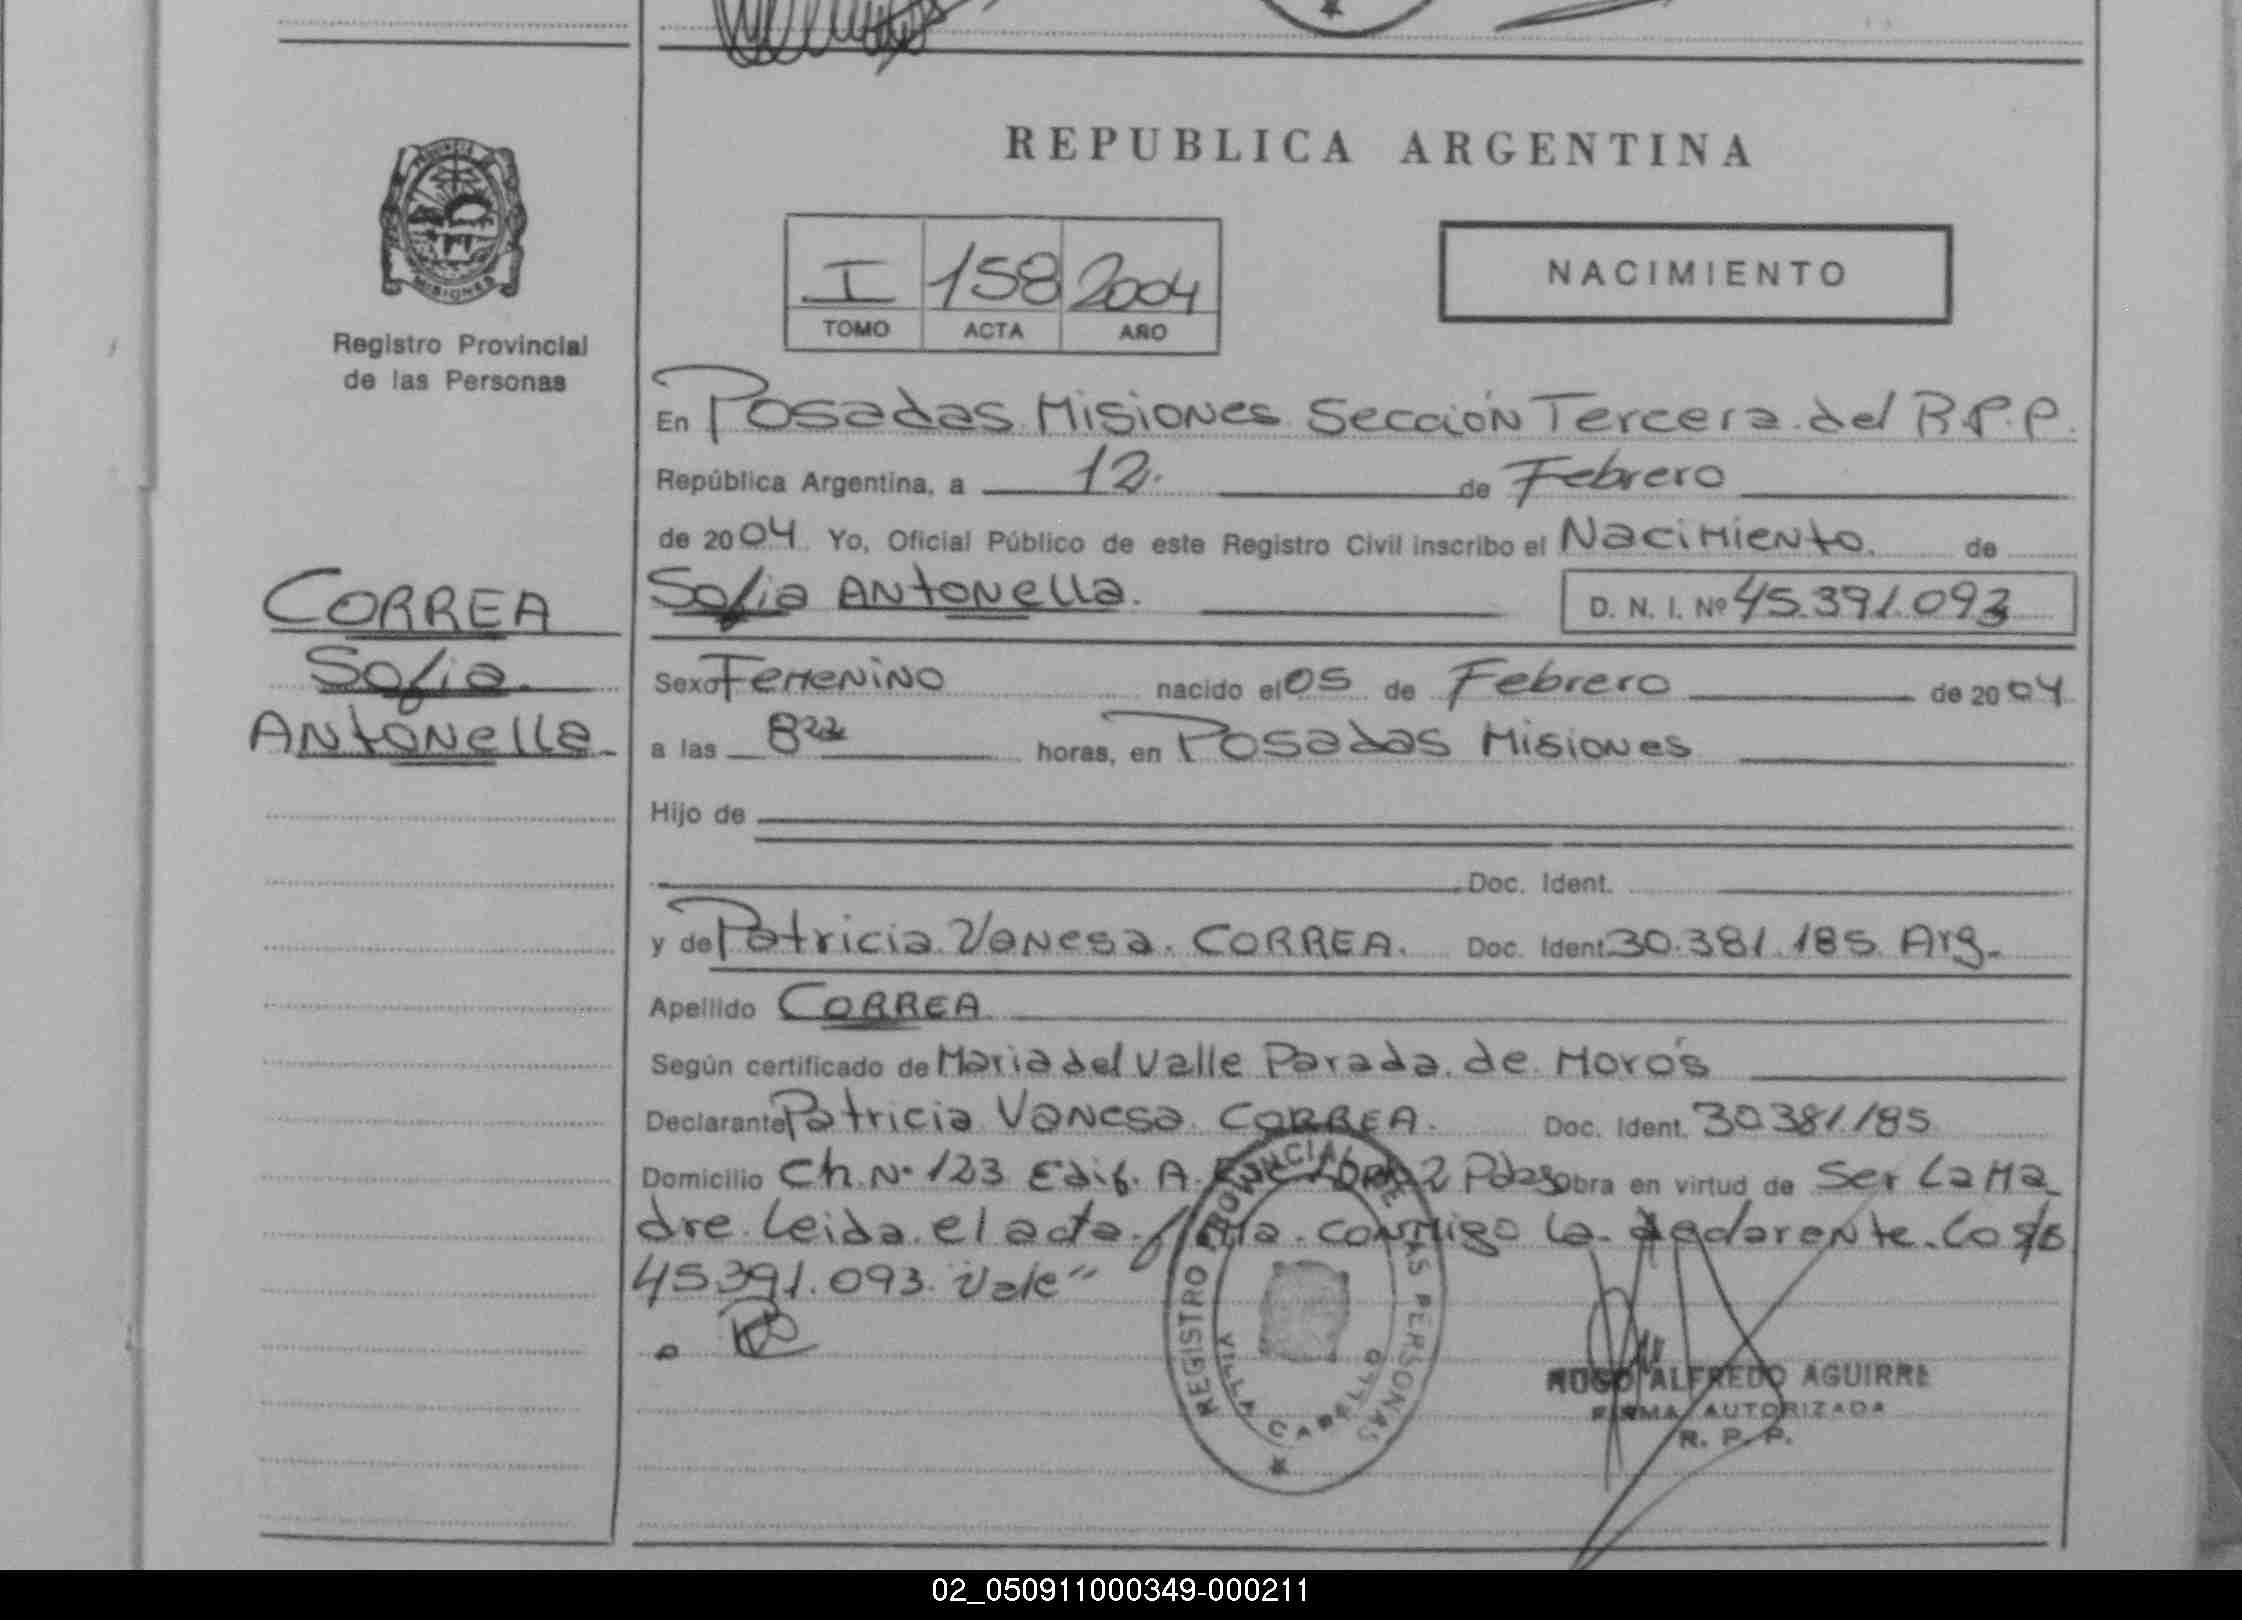 REPUBLICA ARGENTINA
PROVINCIA DE MISIONES
Registro Provincial
de las Personas
I 158 2004
TOMO ACTA AÑO
NACIMIENTO
En Posadas Misiones Sección Tercera del R.P.P.
República Argentina, a 12. de Febrero
de 2004 Yo, Oficial Público de este Registro Civil inscribo el Nacimiento. de
Sofia Antonella. D. N. I. Nº 45.391.093
CORREA
Sofia
Antonella
Sexo Femenino nacido el 05 de Febrero de 2004
a las 8 horas, en Posadas Misiones
Hijo de
Doc. Ident.
y de Patricia Vanesa CORREA. Doc. Ident. 30.381.185 Arg.
Apellido CORREA
Según certificado de Maria del Valle Parada de Morós
Declarante Patricia Vanesa CORREA. Doc. Ident. 30381185
Domicilio Ch. Nº 123 Edif. A. 2 Pdas obra en virtud de Ser La Ma
dre. Leida el acta firma conmigo la declarante. Lo s/b
45.391.093. "Vale"
REGISTRO PROVINCIAL DE LAS PERSONAS
VILLA CABELLO
HUGO ALFREDO AGUIRRE
FIRMA AUTORIZADA
R. P. P.
02_050911000349-000211